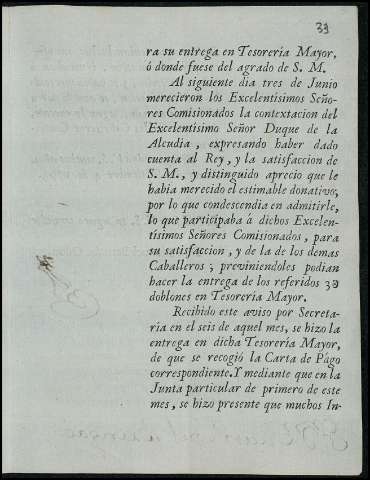 39
ra su entrega en Tesorería Mayor,
ó donde fuese del agrado de S. M.
Al siguiente dia tres de Junio
merecieron los Excelentísimos Seño-
res Comisionados la contextacion del
Excelentísimo Señor Duque de la
Alcudia, expresando haber dado
cuenta al Rey, y la satisfaccion de
S. M., y distinguido aprecio que le
habia merecido el estimable donativo,
por lo que condescendia en admitirle,
lo que participaba á dichos Excelen-
tísimos Señores Comisionados, para
su satisfaccion, y de la de los demas
Caballeros; previniendoles podian
hacer la entrega de los referidos
doblones en Tesorería Mayor.
Recibido este aviso por Secreta-
ria en el seis de aquel mes, se hizo la
entrega en dicha Tesorería Mayor,
de que se recogió la Carta de Pago
correspondiente. Y mediante que en la
Junta particular de primero de este
mes, se hizo presente que muchos In-